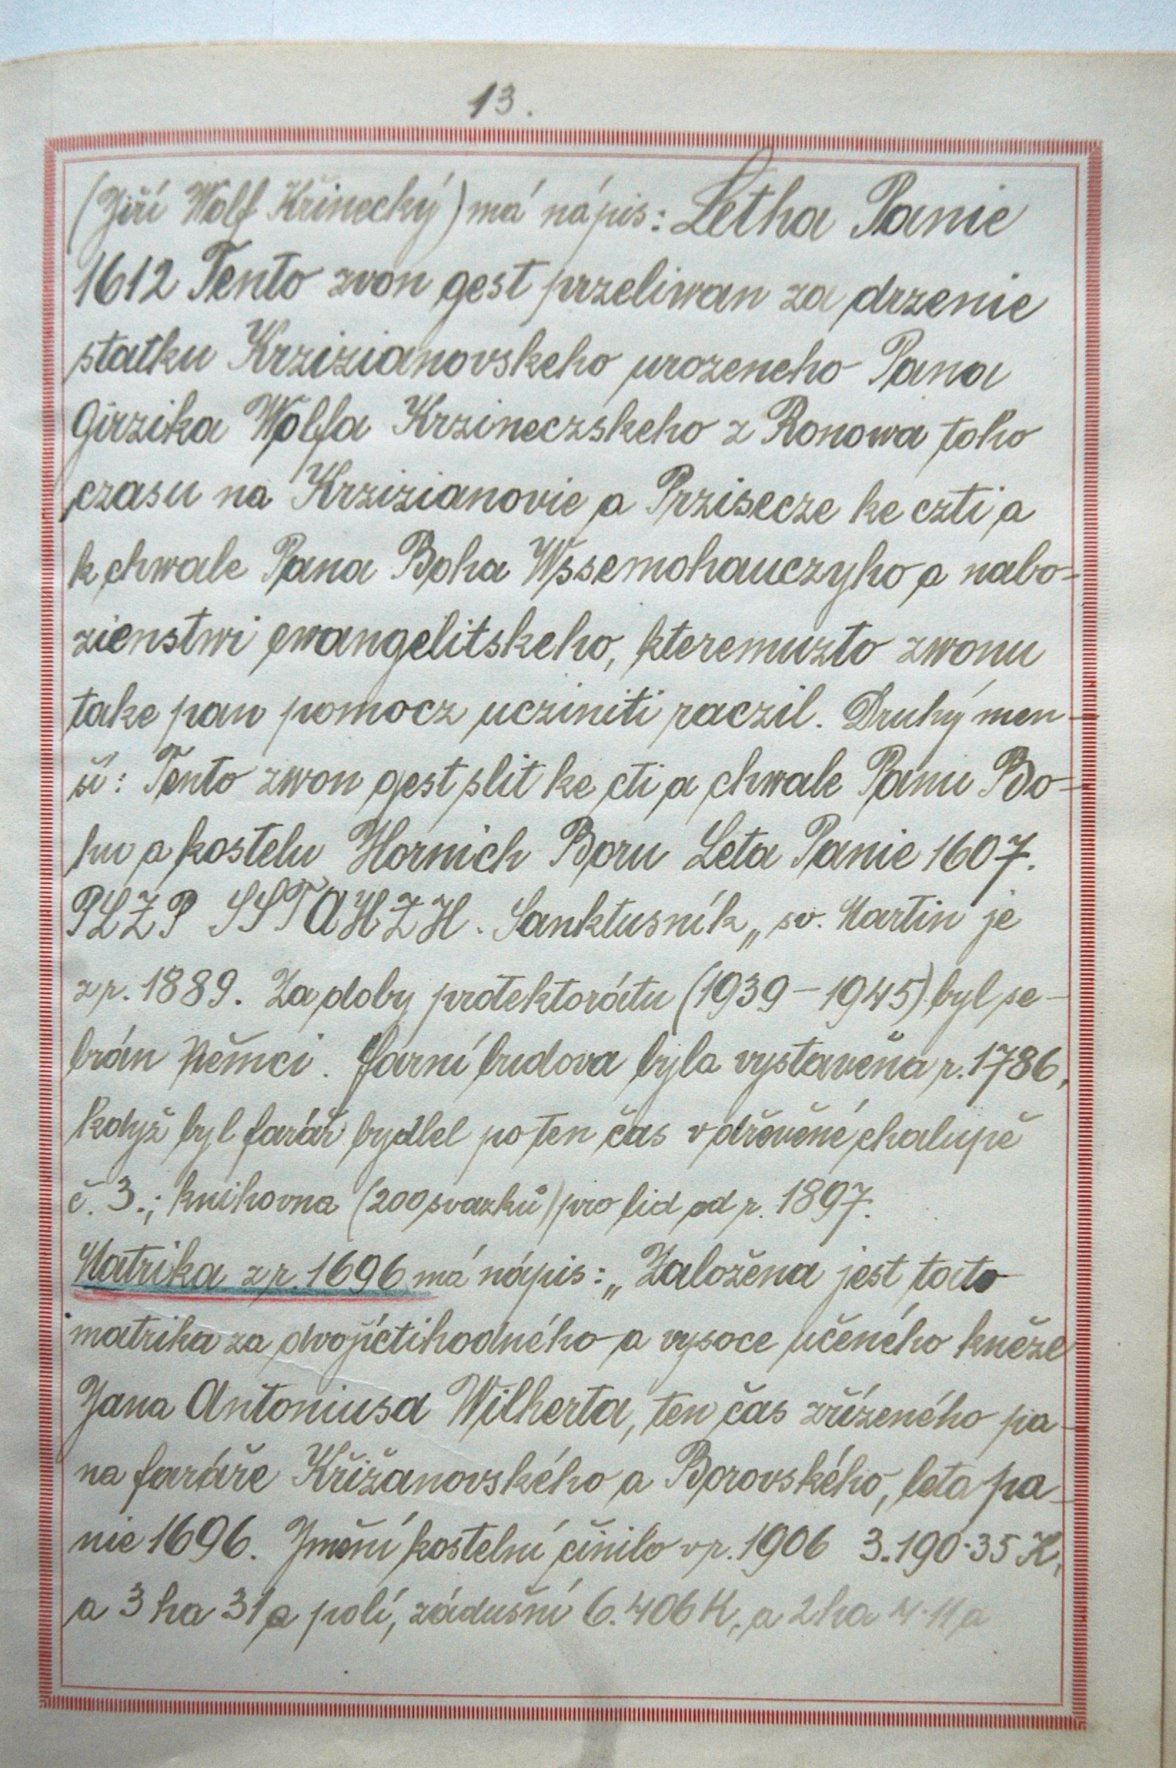 13.
(Jiří Wolf Křinecký) má nápis: Letha Panie
1612 Tento zvon gest przeliwan za drzenie
statku Krzizianovskeho urozeneho Pana
Girzika Wolfa Krzineczskeho z Ronowa toho
czasu na Krzizianovie a Przisecze ke czti a
k chwale Pana Boha Wssemohauczyho a nabo-
zienstwi ewangelitskeho, kteremuzto zwonu
take pan pomocz ucziniti raczil. Druhý men-
ší: Tento zwon gest slit ke cti a chwale Panu Bo-
hu a kostelu Hornich Boru Leta Panie 1607.
PLZP SSTAHZH. Sanktusník „ sv. Martin je
z r. 1889. Za doby protektorátu (1939 – 1945) byl se-
brán Němci. Farní budova byla vystavěna r. 1786,
když byl farář bydlel po ten čas v dřevěné chalupě
č. 3.; knihovna (200 svazků) pro lid od r. 1897.
Matrika z r. 1696 má nápis: „Založena jest tato
matrika za dvojíctihodného a vysoce učeného kněze
Jana Antoniusa Wilherta, ten čas zřízeného pa-
na faráře Křižanovského a Borovského, leta pa-
nie 1696. Jmění kostelní činilo v r. 1906 3.190·35 K,
a 3 ha 31 a polí, zádušní 6.406 K, a 2 ha 4·11 a